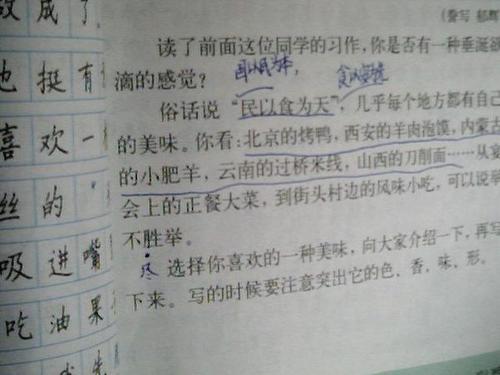 改成了
也挺有
喜欢一
丝的
吸进嘴
吃油果
读了前面这位同学的习作，你是否有一种垂涎欲
滴的感觉？
俗话说“民以食为天”，几乎每个地方都有自己
的美味。你看：北京的烤鸭，西安的羊肉泡馍，内蒙古
的小肥羊，云南的过桥米线，山西的刀削面……从宴
会上的正餐大菜，到街头村边的风味小吃，可以说举
不胜举。
尽
选择你喜欢的一种美味，向大家介绍一下，再写
下来。写的时候要注意突出它的色、香、味、形。